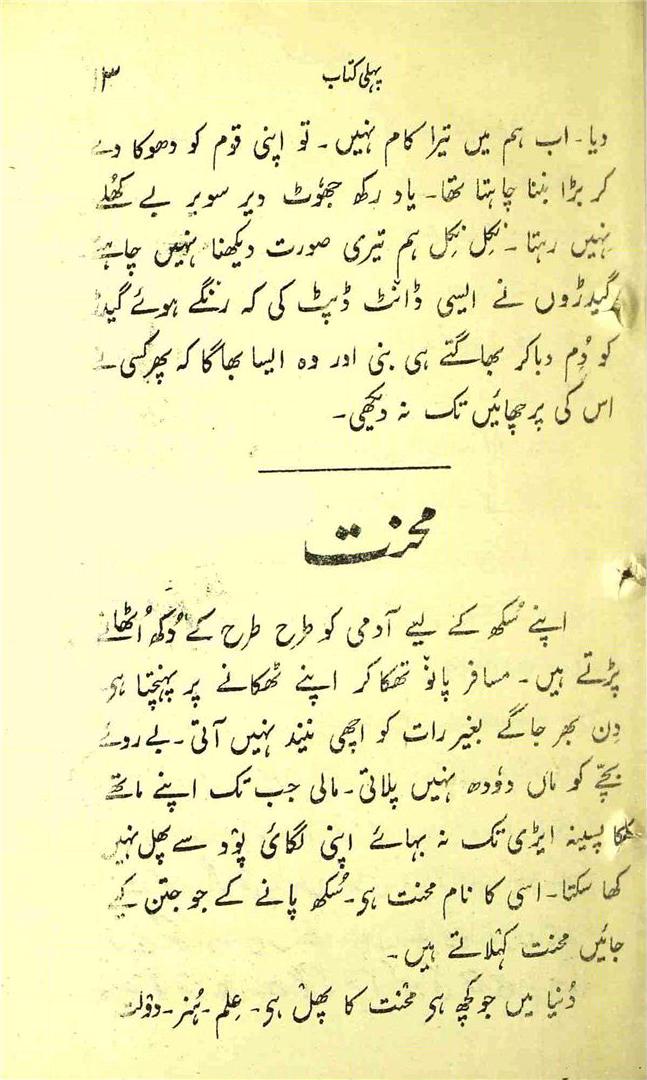 پہلی کتاب ۱۳
دیا۔ اب ہم میں تیرا کام نہیں۔ تو اپنی قوم کو دھوکا دے
کر بڑا بننا چاہتا تھا۔ یاد رکھ جھوٹ دیر سویر بے کھُلے
نہیں رہتا۔ نِکل نِکل ہم تیری صورت دیکھنا نہیں چاہتے
گیدڑوں نے ایسی ڈانٹ ڈپٹ کی کہ رنگے ہوئے گیدڑ
کو دُم دباکر بھاگتے ہی بنی اور وہ ایسا بھاگا کہ پھر کسی نے
اس کی پرچھائیں تک نہ دیکھی۔
محنت
اپنے سُکھ کے لیے آدمی کو طرح طرح کے دُکھ اُٹھانے
پڑتے ہیں۔ مسافر پانو تھکا کر اپنے ٹھکانے پر پہنچتا ہی۔
دِن بھر جاگے بغیر رات کو اچھی نیند نہیں آتی۔ بے روئے
بچّے کو ماں دوٗدھ نہیں پلاتی۔ مالی جب تک اپنے ماتھے
کا پسینہ ایڑی تک نہ بہائے اپنی لگائی پوٗد سے پھل نہیں
کھا سکتا۔ اسی کا نام محنت ہی۔ سُکھ پانے کے جو جتن کیے
جائیں محنت کہلاتے ہیں۔
دُنیا میں جو کچھ ہی محنت کا پھل ہی۔ عِلم۔ ہُنر۔ دولت